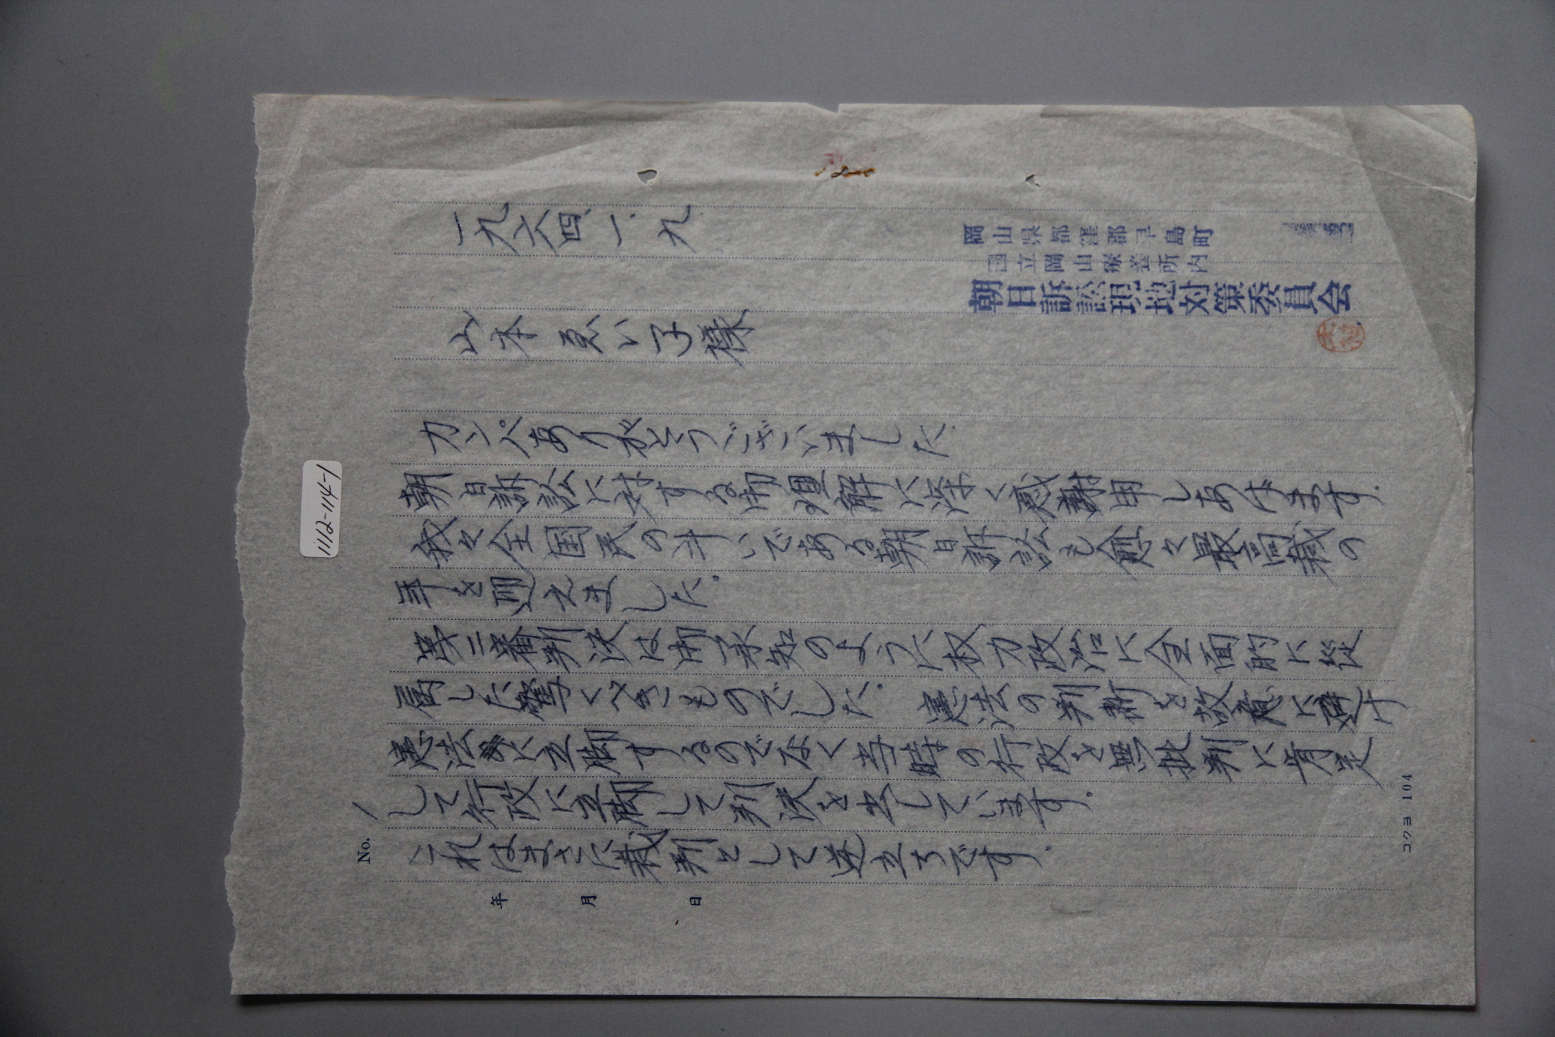 一九六四、一、九
岡山県都窪郡早島町
国立岡山療養所内
朝日訴訟現地対策委員会
山本ゑい子様
カンパありがとうございました。
朝日訴訟に対する御理解に深く感謝申しあげます。
我々全国民の斗いである朝日訴訟も愈々最高裁の
年を迎えました。
第二審判決は御承知のように权力政治に全面的に従
属した驚くべきものでした。憲法の判断を故意に避け
憲法に立脚するのでなく当時の行政を無批判に肯定
して行政に立脚して判決を出しています。
これはまさに裁判として逆立ちです。
No. 1
年 月 日
コクヨ 104